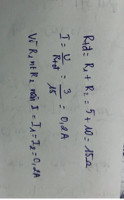 Rtđ = R₁ + R₂ = 5 + 10 = 15Ω
I = U/Rtđ = 3/15 = 0,2A
Vì R₁ nt R₂ nên I = I₁ = I₂ = 0,2A